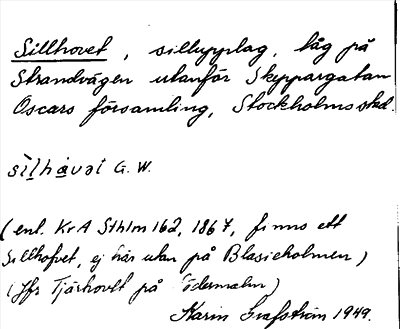 Sillhovet, sillupplag, låg på
Strandvägen utanför Skeppargatan
Oscars församling, Stockholms stad.
sìlhåvət G. W.
(enl. KrA Sthlm 162, 1867, finns ett
Sillhofvet, ej här utan på Blasieholmen)
(Jfr Tjärhovet på Södermalm)
Karin Grafström 1949.